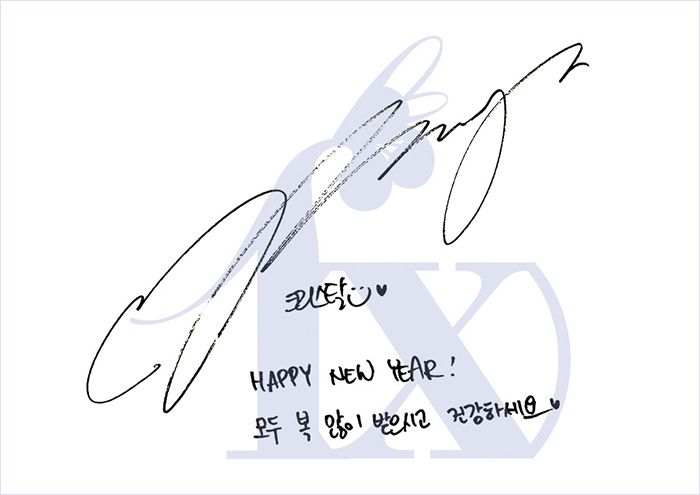 크리스탈 ♥
HAPPY NEW YEAR!
모두 복 많이 받으시고 건강하세요♥
fx